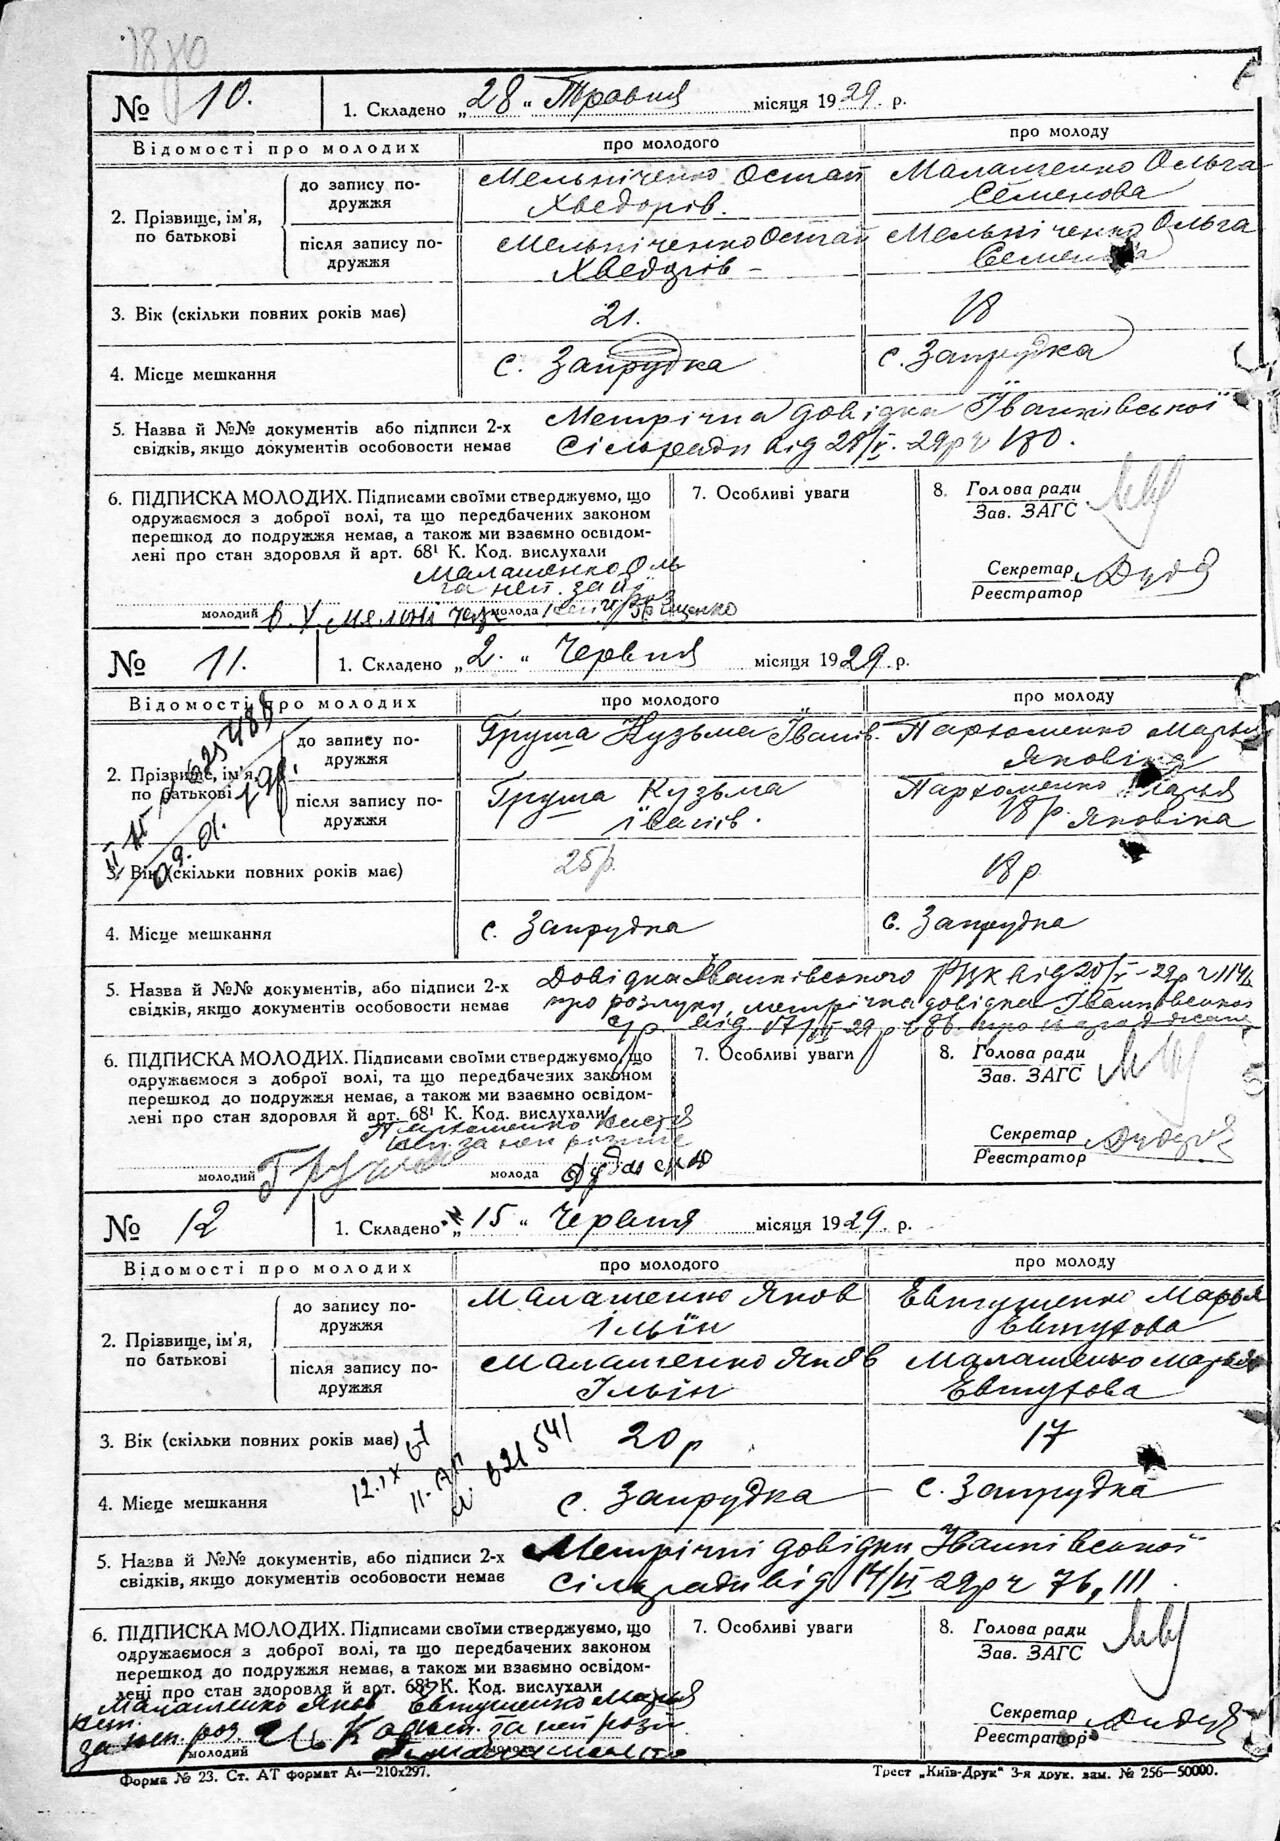 № 10. 1. Складено „28“ Травня місяця 1929 р.
Відомості про молодих про молодого про молоду
2. Прізвище, ім'я, по батькові
до запису подружжя Мельніченко Остап Маламенко Ольга
Хведорів. Семенова
після запису подружжя Мельніченко Остап Мельніченко Ольга
Хведорів –
3. Вік (скільки повних років має) 21. 18
4. Місце мешкання с. Запрудка с. Запрудка
5. Назва й №№ документів або підписи 2-х Метрічна довідка Іванківської
свідків, якщо документів особовости немає Сільради від 28/V-29р ч 180.
6. ПІДПИСКА МОЛОДИХ. Підписами своїми стверджуємо, що 7. Особливі уваги 8. Голова ради
одружаємося з доброї волі, та що передбачених законом Зав. ЗАГС
перешкод до подружжя немає, а також ми взаємно освідом-
лені про стан здоровля й арт. 68¹ К. Код. вислухали
Секретар
Реєстратор
молодий молода
№ 11. 1. Складено „2.“ Червня місяця 1929 р.
Відомості про молодих про молодого про молоду
2. Прізвище, ім'я, по батькові
до запису подружжя Груша Кузьма Іванів. Пархоменко Марья
Яковівна
після запису подружжя Груша Кузьма Пархоменко
Іванів. 18р. Яковівна
3. Вік (скільки повних років має) 25р. 18р
4. Місце мешкання с. Запрудка с. Запрудка
5. Назва й №№ документів, або підписи 2-х Довідка Іванківського РВК від 20/V-29р ч
свідків, якщо документів особовости немає про розлуку метрічна довідка Іванковської
с/р від 17/
6. ПІДПИСКА МОЛОДИХ. Підписами своїми стверджуємо, що 7. Особливі уваги 8. Голова ради
одружаємося з доброї волі, та що передбачених законом Зав. ЗАГС
перешкод до подружжя немає, а також ми взаємно освідом-
лені про стан здоровля й арт. 68¹ К. Код. вислухали
Секретар
Реєстратор
молодий Груша молода
№ 12 1. Складено „15“ Червня місяця 1929 р.
Відомості про молодих про молодого про молоду
2. Прізвище, ім'я, по батькові
до запису подружжя Маламенко Яков Евтушенко Марья
Ільїн Евтухова
після запису подружжя Маламенко Яків Маламенко Марья
Ільін Евтухова
3. Вік (скільки повних років має) 20р 17
4. Місце мешкання с. Запрудка – с. Запрудка
5. Назва й №№ документів, або підписи 2-х Метрічні довідки Іванківської
свідків, якщо документів особовости немає Сільради від 14/VI-29р ч 76, 111.
6. ПІДПИСКА МОЛОДИХ. Підписами своїми стверджуємо, що 7. Особливі уваги 8. Голова ради
одружаємося з доброї волі, та що передбачених законом Зав. ЗАГС
перешкод до подружжя немає, а також ми взаємно освідом-
лені про стан здоровля й арт. 68¹ К. Код. вислухали
Маламенко Яков Евтушенко Марья
Секретар
Реєстратор
молодий
Форма № 23. Ст. АТ формат А₄—210х297. Трест „Київ-Друк“ 3-я друк. зам. № 256—50000.